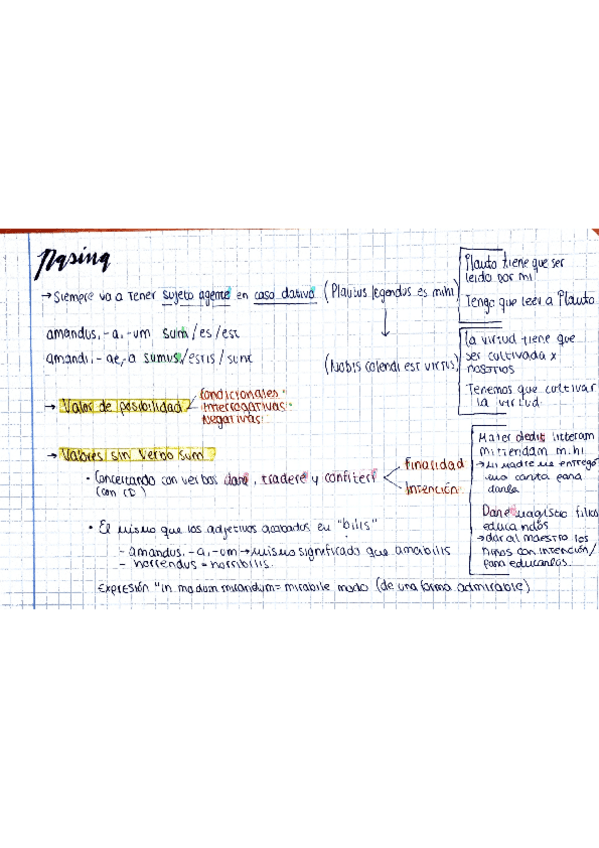 Pasiva
→ Siempre va a tener sujeto agente en caso dativo (Plautus legendus es mihi)
Plauto tiene que ser
leído por mi
Tengo que leer a Plauto
amandus, -a, -um sum/es/est
amandi, -ae, a sumus/estis/sunt
(Nobis colendi est virtus)
la virtud tiene que
ser cultivada x
nosotros
Tenemos que cultivar
la virtud
→ Valor de posibilidad
Condicionales
Interrogativas
Negativas
→ Valores sin verbo sum
• Concertando con verbos dare, tradere y
(con CD)
Finalidad
Intención
Mater dedit litteram
mittendam mihi
→ mi madre me entregó
una carta para
darla
Dare magistro filios
educandos
→ dar al maestro los
niños con intención/
para educarlos
• El mismo que los adjetivos acabados en "bilis"
- amandus, -a, -um → mismo significado que amabilis
- horrendus = horribilis
Expresión "in modum mirandum = mirabile modo (de una forma admirable)